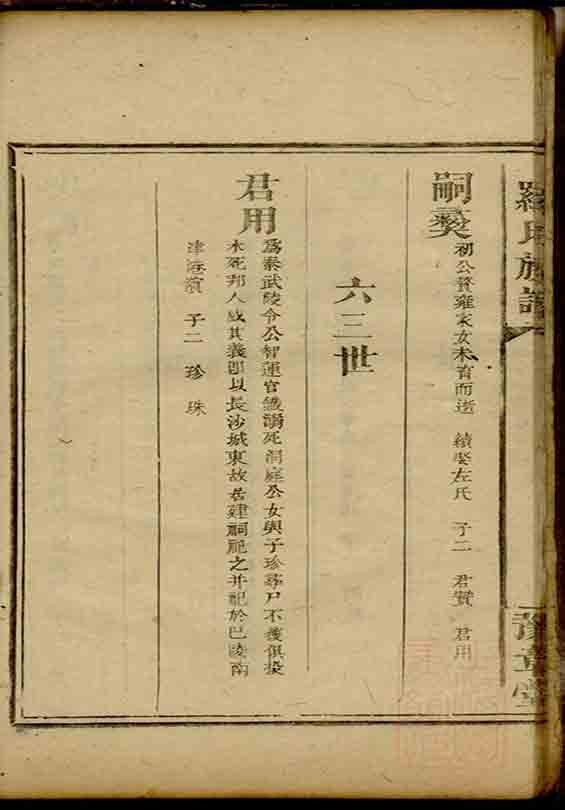 羅氏族譜
豫章堂
嗣奕
初公贅雍家女未育而逝 續娶左氏 子二 君贊 君用
六三世
君用
為秦武陵令公智運官鐵溺死洞庭公女與子珍尋尸不獲俱投
水死邦人咸其義即以長沙城東故居建嗣祀之并祀於巴陵南
津港濱 子二 珍 珠